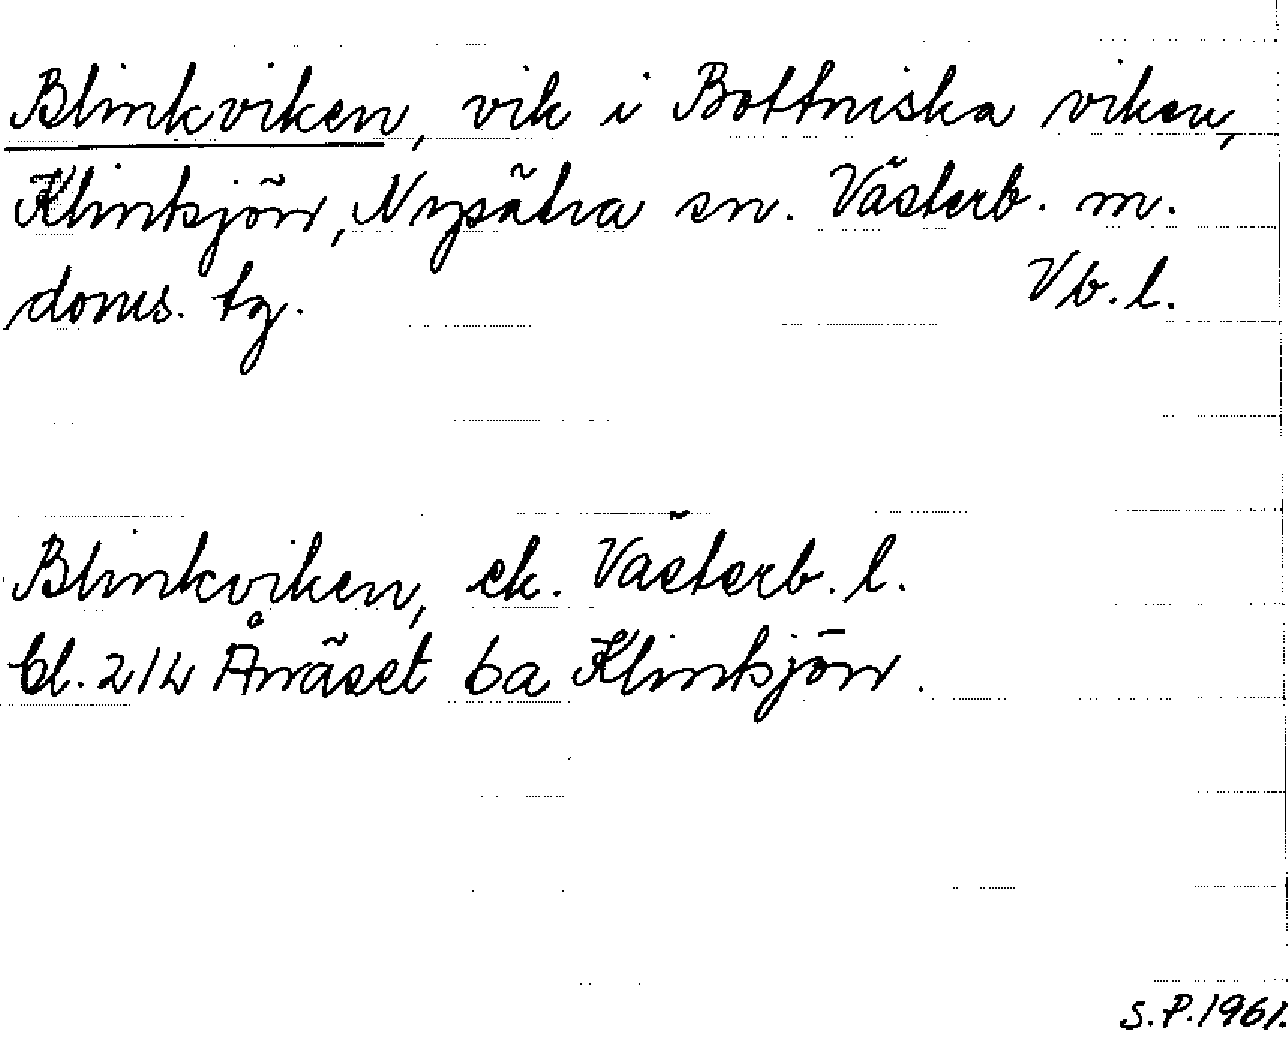 Blinkviken, vik i Bottniska viken,
Klintsjön, Nysätra sn. Västerb. m.
doms. tg. Vb. l.
Blinkviken, ek. Västerb. l.
bl. 214 Ånäset 6a Klintsjön.
S. P. 1961.